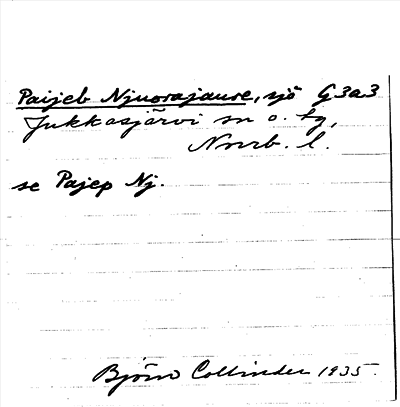 Paijeb Njuorajaure, sjö G3a3
Jukkasjärvi sn o. tg,
Norrb. l.
se Pajep Nj.
Björn Collinder 1935.